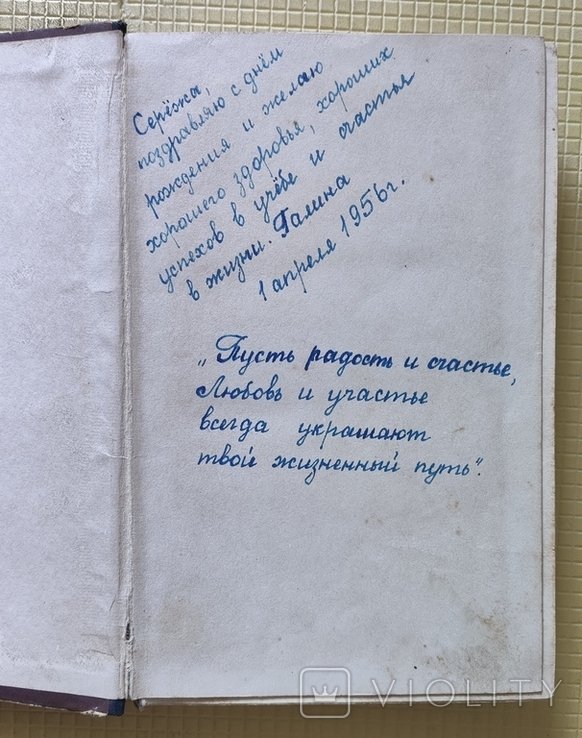 Серёжа,
поздравляю с днём
рождения и желаю
хорошего здоровья, хороших
успехов в учёбе и счастья
в жизни. Галина
1 апреля 1956г.
„Пусть радость и счастье,
Любовь и участье
всегда украшают
твой жизненный путь".
VIOLITY